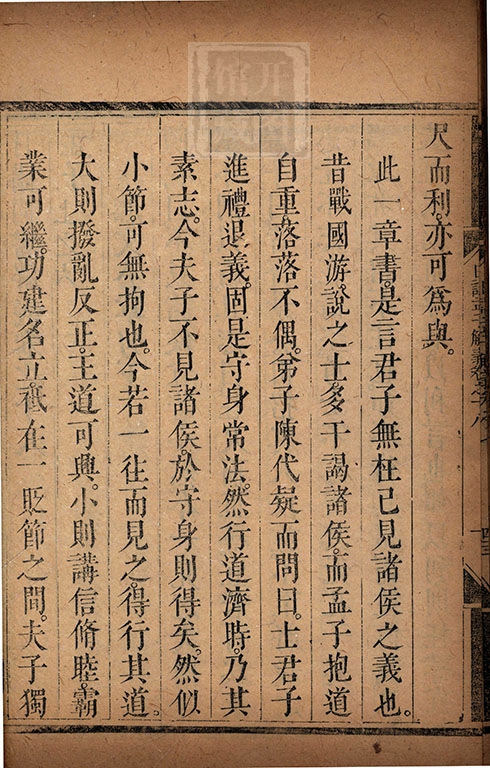 尺而利。亦可為與。
此一章書。是言君子無枉己見諸侯之義也。
昔戰國游說之士。多干謁諸侯。而孟子抱道
自重。落落不偶。弟子陳代疑而問曰。士君子
進禮退義。固是守身常法。然行道濟時。乃其
素志。今夫子不見諸侯。於守身則得矣。然似
小節。可無拘也。今若一往而見之。得行其道。
大則撥亂反正。王道可興。小則講信脩睦。霸
業可繼。功建名立。祗在一貶節之間。夫子獨